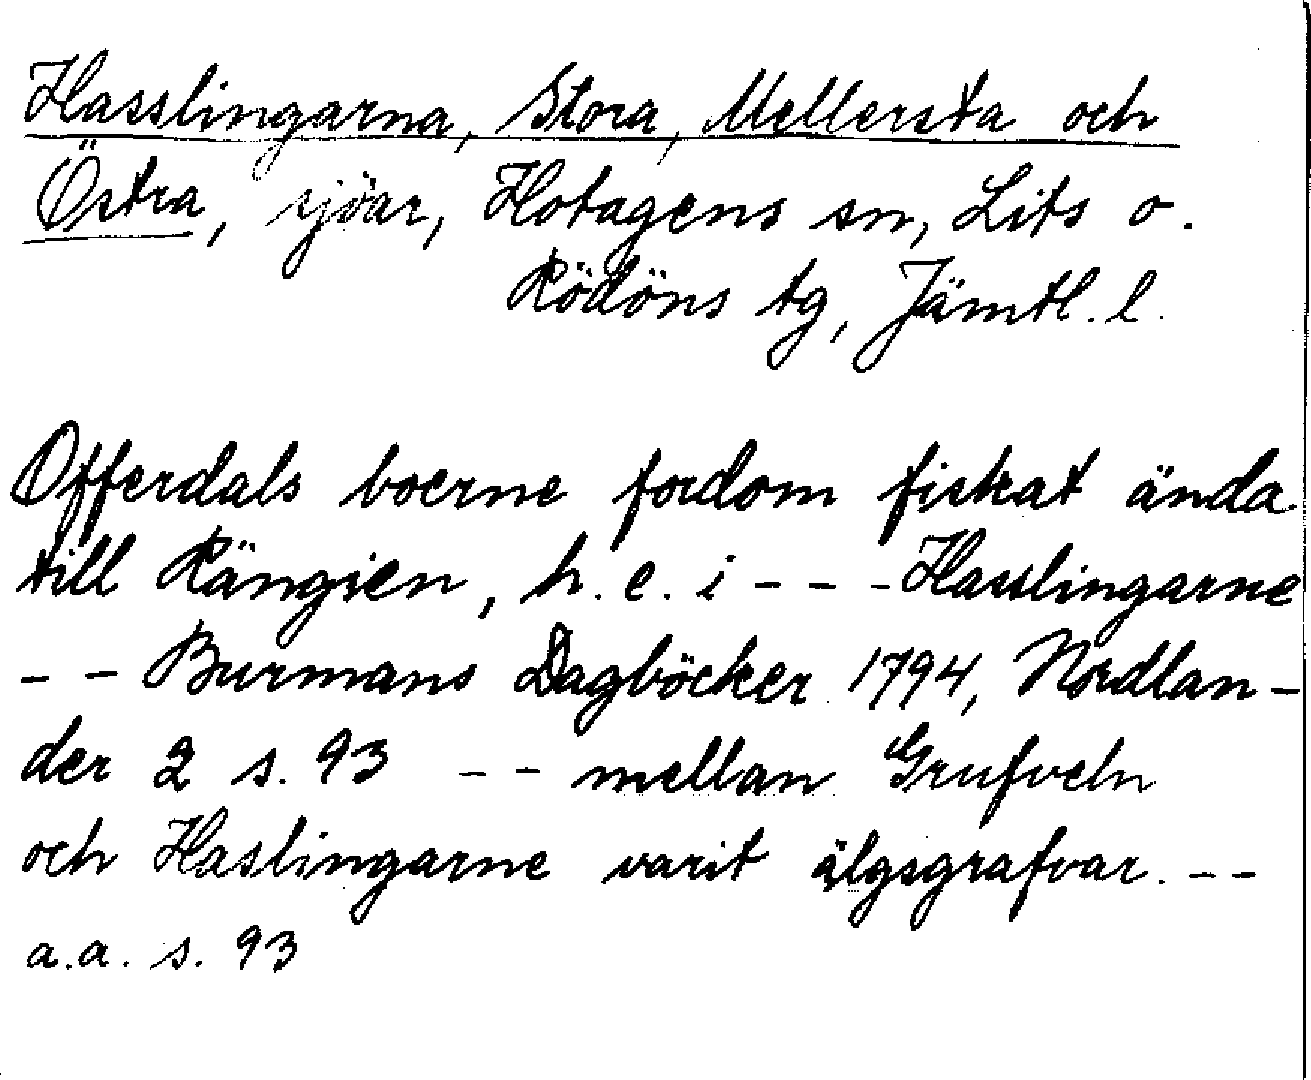 Hasslingarna, Stora, Mellersta och
Östra, sjöar, Hotagens sn, Lits o.
Rödöns tg, Jämtl. l.
Offerdals boerne fordom fiskat ända
till Rängien, h. e. i - - - Hasslingarne
- - Burmans Dagböcker 1794, Nordlan-
der 2 s. 93 - - mellan Grufveln
och Haslingarne varit älgsgrafvar. - -
a.a. s. 93